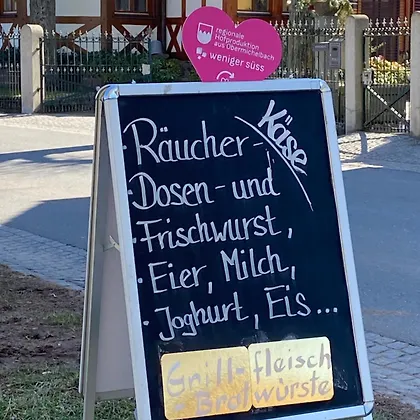 regionale
Hofproduktion
aus Obermichelbach
weniger süss
Käse
· Räucher-
· Dosen- und
· Frischwurst,
· Eier, Milch,
· Joghurt, Eis...
Grillfleisch
+ Bratwürste